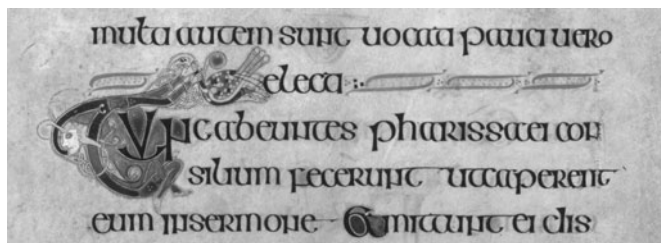 multi autem sunt uocati pauci uero
electi
Tunc abeuntes pharissaei con
silium fecerunt ut caperent
eum in sermone Et mittunt ei dis